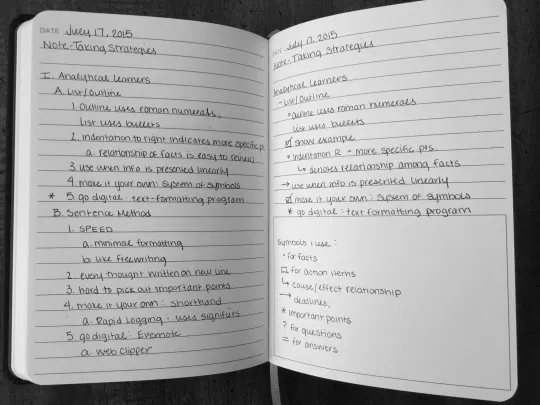 DATE July 17, 2015
Note-Taking Strategies
I. Analytical Learners
A. List/Outline
1. Outline uses roman numerals,
List uses bullets
2. Indentation to right indicates more specific pts.
a. relationship of facts is easy to review
3. use when info is presented linearly
4. make it your own: system of symbols
* 5. go digital: text-formatting program
B. Sentence Method
1. SPEED
a. minimal formatting
b. like freewriting
2. every thought written on new line
3. hard to pick out important points
4. make it your own: shorthand
a. Rapid Logging: uses signifiers
5. go digital: Evernote
a. web clipper
DATE July 17, 2015
Note-Taking Strategies
Analytical Learners
- List/Outline
• Outline uses roman numerals
List uses bullets
☑ show example
• indentation R = more specific pts.
↳ denotes relationship among facts
→ use when info is presented linearly
☑ make it your own: system of symbols
* go digital: text formatting program
Symbols I use:
• for facts
□ for action items
↳ cause/effect relationship
→ deadlines,
* important points
? for questions
= for answers